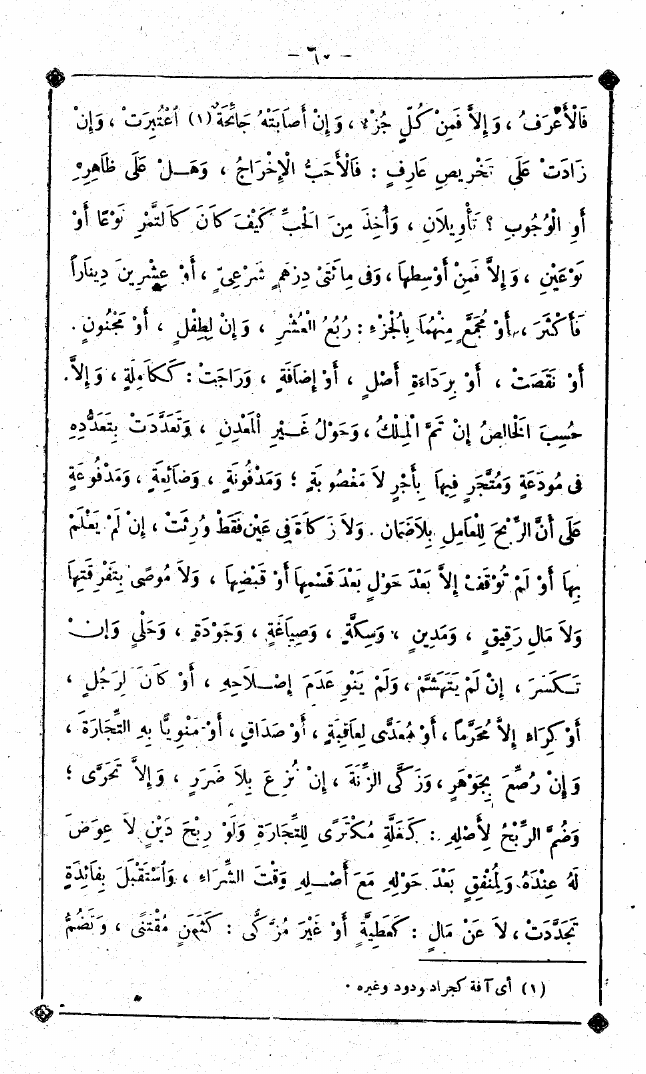 — ٦٠ —
فَالْأَعْرَفُ ، وَإِلاَّ فَمِنْ كُلِّ جُزْءٍ ، وَإِنْ أَصَابَتْهُ جَائِحَةٌ (١) اُعْتُبِرَتْ ، وَإِنْ
زَادَتْ عَلَى تَخْرِيصِ عَارِفٍ : فَالْأَحَبُّ الْإِخْرَاجُ ، وَهَـــلْ عَلَى ظَاهِرِهِ
أَوِ الْوُجُوبِ ؟ تَأْوِيلاَنِ ، وَأُخِذَ مِنَ الْحَبِّ كَيْفَ كَانَ كَالتَّمْرِ نَوْعًا أَوْ
نَوْعَيْنِ ، وَإِلاَّ فَمِنْ أَوْسَطِهَا ، وَفِى مِائَتَىْ دِرْهَمٍ شَرْعِيٍّ ، أَوْ عِشْرِينَ دِينَاراً
فَأَكْثَرَ ، أَوْ مُجَمَّعٍ مِنْهُمَا بِالْجُزْءِ : رُبُعُ الْعُشْرِ ، وَإِنْ لِطِفْلٍ ، أَوْ مَجْنُونٍ .
أَوْ نَقَصَتْ ، أَوْ بِرَدَاءَةِ أَصْلٍ ، أَوْ إِضَافَةٍ ، وَرَاجَتْ : كَكَامِلَةٍ ، وَإِلاَّ .
حُسِبَ الْخَالِصُ إِنْ تَمَّ الْمِلْكُ ، وَحَوْلُ غَــيْرِ الْمَعْدِنِ ، وَتَعَدَّدَتْ بِتَعَدُّدِهِ
فِى مُودَعَةٍ وَمُتَّجَرٍ فِيهَا بِأَجْرٍ لاَ مَغْصُوبَةٍ ؛ وَمَدْفُونَةٍ ، وَضَائِعَةٍ ، وَمَدْفُوعَةٍ
عَلَى أَنَّ الرِّبْحَ لِلْعَامِلِ بِلاَضَمَانٍ . وَلاَ زَكَاةَ فِى عَيْنٍ فَقَطْ وُرِثَتْ ، إِنْ لَمْ يَعْلَمْ
بِهَا أَوْ لَمْ تُوقَفْ إِلاَّ بَعْدَ حَوْلٍ بَعْدَ قَسْمِهَا أَوْ قَبْضِهَا ، وَلاَ مُوصًى بِتَفْرِقَتِهَا
وَلاَ مَالِ رَقِيقٍ ، وَمَدِينٍ ، وَسِكَّةٍ ، وَصِيَاغَةٍ ، وَجَوْدَةٍ ، وَحَلْيٍ وَإِنْ
تَـكَسَّرَ ، إِنْ لَمْ يَتَهَشَّمْ ، وَلَمْ يَنْوِ عَدَمَ إِصْــلاَحِهِ ، أَوْ كَانَ لِرَجُلٍ ،
أَوْ كِرَاءٍ إِلاَّ مُحَرَّماً ، أَوْ مُعَدًّى لِعَاقِبَةٍ ، أَوْ صَدَاقٍ ، أَوْ مَنْوِيًّا بِهِ التِّجَارَةَ ،
وَإِنْ رُصِّعَ بِجَوْهَرٍ ، وَزَكَّى الزِّنَةَ ، إِنْ نُزِعَ بِلاَ ضَرَرٍ ، وَإِلاَّ تَحَرَّى ؛
وَضُمَّ الرِّبْحُ لِأَصْلِهِ : كَغَلَّةِ مُكْتَرًى لِلتِّجَارَةِ وَلَوْ رِبْحَ دَيْنٍ لاَ عِوَضَ
لَهُ عِنْدَهُ وَلِمُنْفِقٍ بَعْدَ حَوْلِهِ مَعَ أَصْــلِهِ وَقْتَ الشِّرَاءِ ، وَاُسْتَقْبَلَ بِفَائِدَةٍ
تَجَدَّدَتْ ، لاَ عَنْ مَالٍ : كَعَطِيَّةٍ أَوْ غَيْرَ مُزَكًّى : كَثَمَنِ مُقْتَنًى ، وَتُضَمُّ
(١) أى آفة كجراد ودود وغيره .